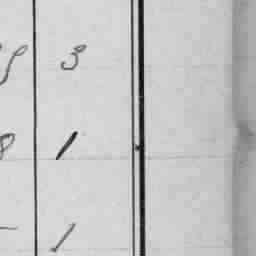 3
8 1
1